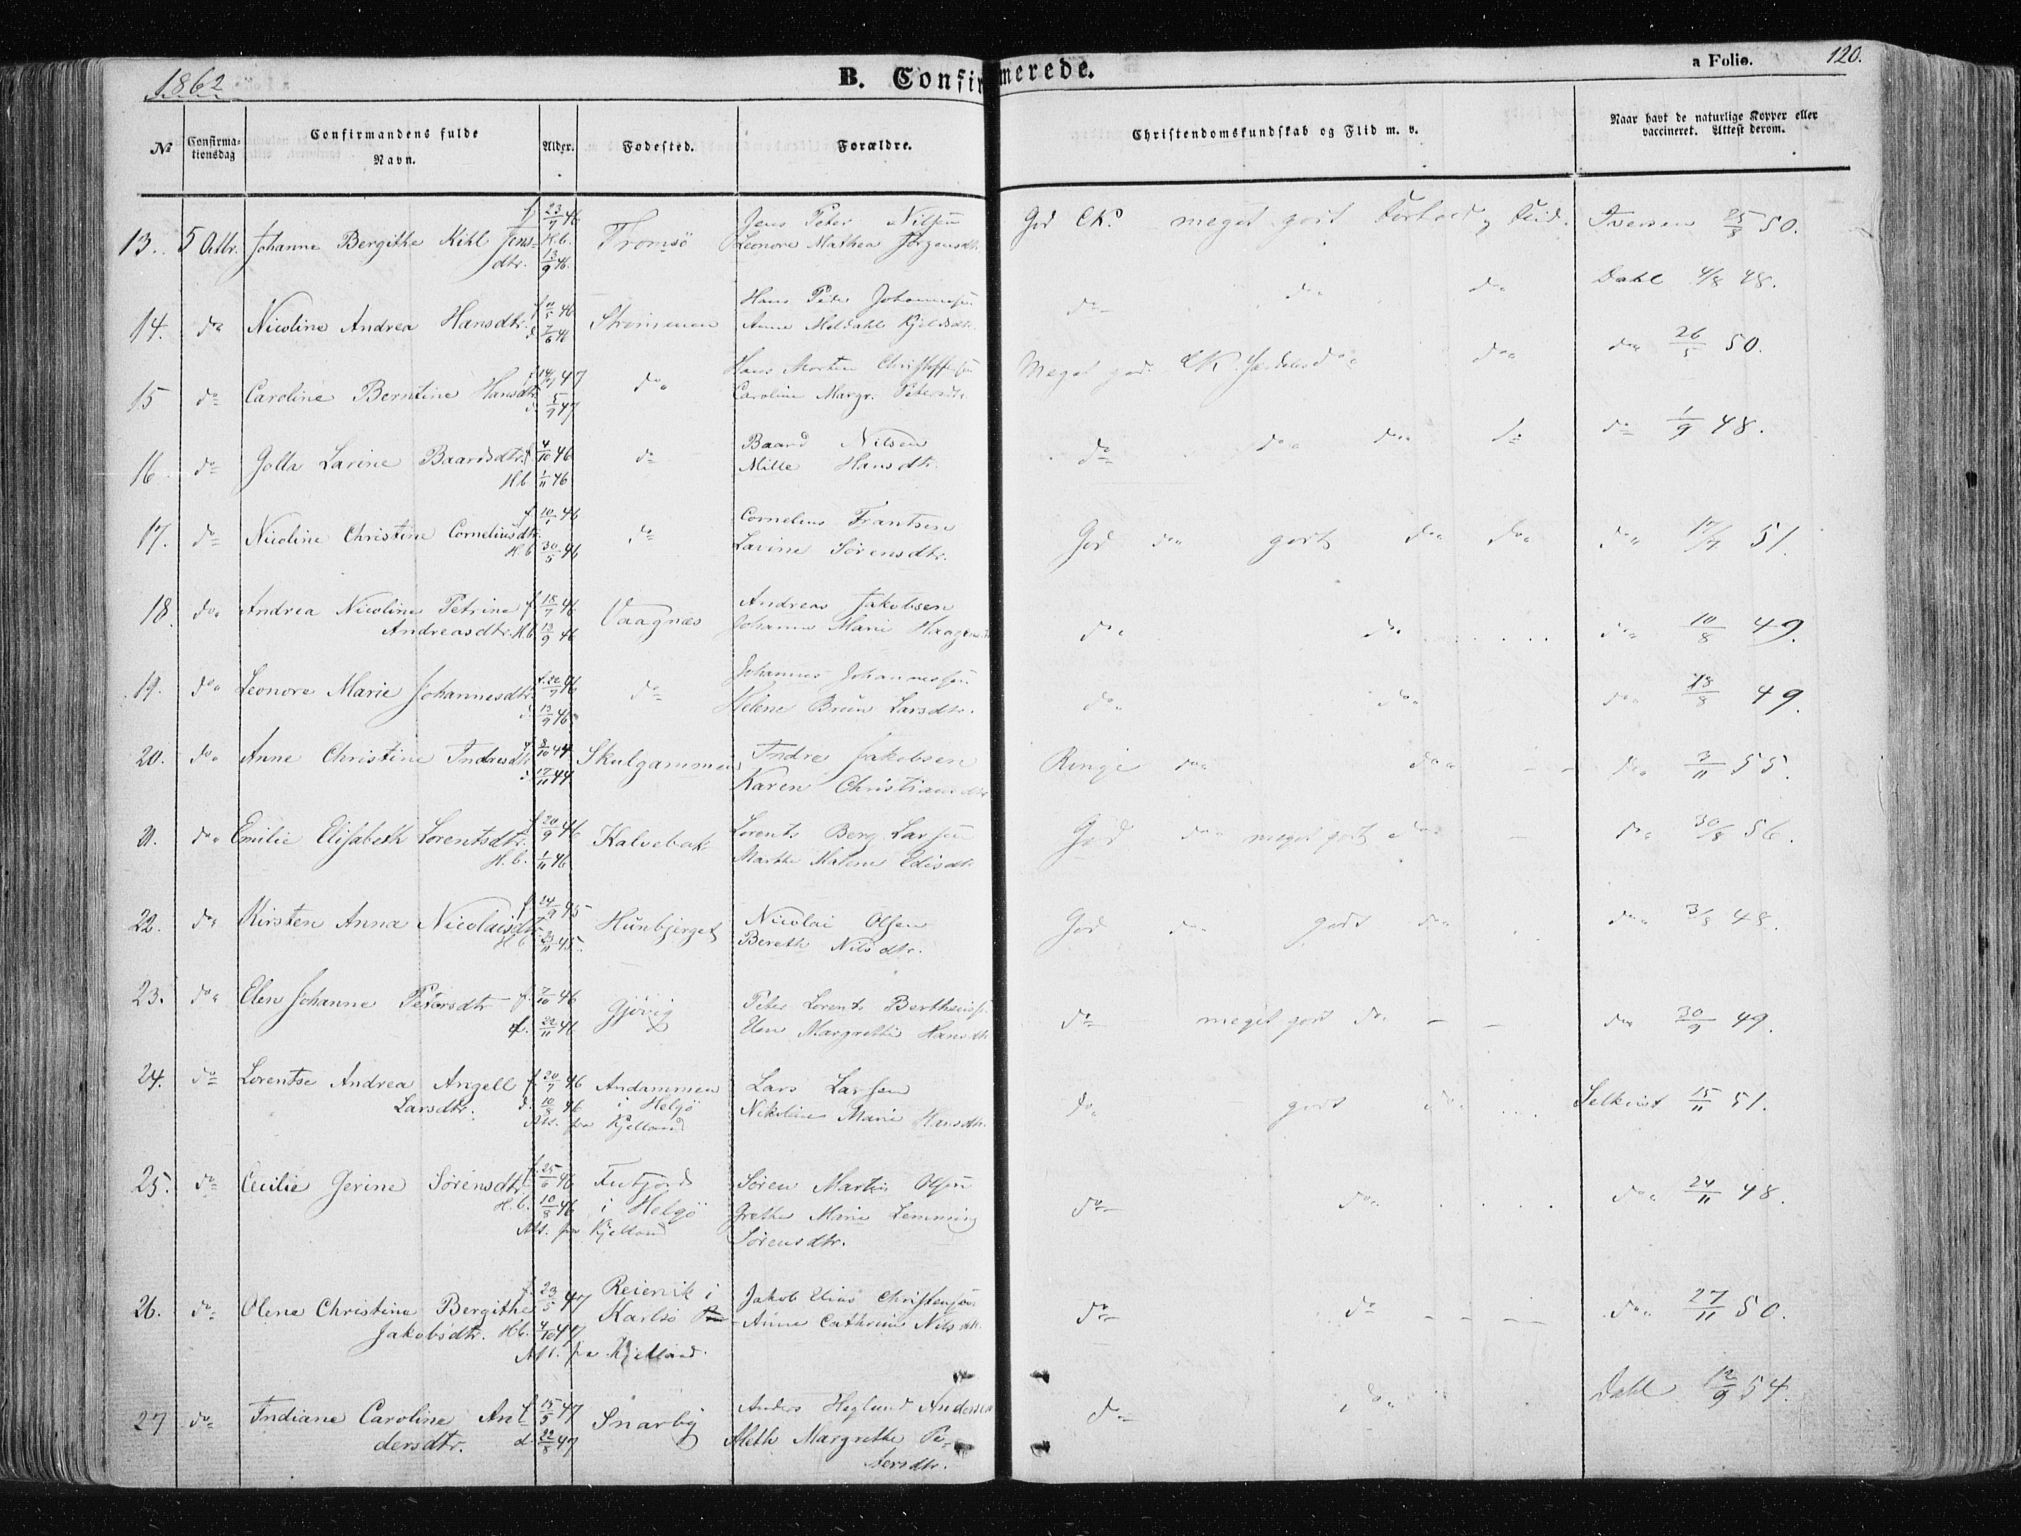 1862 B. Confirmerede. a Folio. 120.
No Confirmationsdag Confirmandens fulde Navn. Alder. Fødested. Forældre. Christendomskundskab og Flid m. v. Naar havt de naturlige Kopper eller vaccineret. Attest derom.
13. 5 Octbr. Johanne Bergithe Kihl Jens- f 23/7 46 Tromsö Jens Peter Nilsen God CK. meget godt Forhold og Flid. Iversen 25/8 50.
dtr. H.b. 13/9 46. Leonore Mathea Jørgensdtr.
14. do Nicoline Andrea Hansdtr. 46 Strømmen Hans Peter Johannesen do do do Dahl 4/8 48.
d 7/6 46 Anne Meldahl Kjeldsdtr.
15 do Caroline Berntine Hansdtr. 47 do Hans Morten Christoffersen Meget god CK. do do do 26/5 50.
d. 5/9 47 Caroline Margr. Petersdtr.
16 do Golla Larine Baardsdtr. f 4/10 46 do Baard Nilsen do do do do do 1/9 48.
H.b 1/11 46 Mille Hansdtr.
17. do Nicoline Christine Corneliusdtr. f 10/5 46 do Cornelius Frantsen God do godt do do do 17/7 51.
H.b 30/5 46 Larine Sørensdtr.
18. do Andrea Nicoline Petrine f 18/7 46 Vaagnæs Andreas Jakobsen do do do 10/8 49.
Andreasdtr. H.b. 13/9 46 Johanna Marie
19. do Leonore Marie Johannesdtr. f. 46 do Johannes Johannessen do do do 18/8 49.
d. 13/9 46 Helene Bruun Larsdtr.
20. do Anne Christine Indresdtr. f 8/10 44 Skulgammen Indre Jakobsen Ringe do do do 3/11 55.
d. 17/11 44 Karen Christiansdtr
21. do Emilie Elisabeth Lorentsdtr. f. 20/9 46 Kalvebak Lorents Berg Larsen God do meget godt do do 30/8 56.
H.b. 1/11 46 Marthe Malene
22. do Kirsten Anna Nicolaisdtr. f. 24/9 45 Hunbjerget Nicolai Olsen God do godt do do 3/8 48.
H.b. 23/11 45. Bereth Nilsdtr.
23. do Elen Johanne Petersdtr f. 7/10 46 Gjövig Peter Lorents do meget godt do do 30/9 49.
d. 22/11 46. Elen Margrethe Hansdtr
24. do Lorentse Andrea Angell f. 20/7 46 Andammen Lars Larsen do godt do Selkvist 15/11 51.
Larsdtr. d. 10/8 46 i Helgö Nikoline Marie Hansdtr.
Att. fra Kjelland
25. do Cecilie Gerine Sörensdtr f. 25/6 46 Futfjord Sören Martin Olsen do do do 24/11 48.
H.b. 10/8 46 i Helgö Grethe Marie Lemming
Att. fra Kjelland Sörensdtr.
26. do Olene Christine Bergithe f. 23/5 47 Reiervik i Jakob Elias Christensen do do do 27/11 50.
Jakobsdtr. H.b. 4/10 47 Karlsö Anne Cathrine Nilsdtr.
Att. fra Kjelland.
27 do Indiane Caroline An- f 15/5 47 Snarby Anders Heglund Andersen do do Dahl 12/9 54.
dersdtr. d. 22/8 47 Meth Margrethe Pe-
tersdtr.